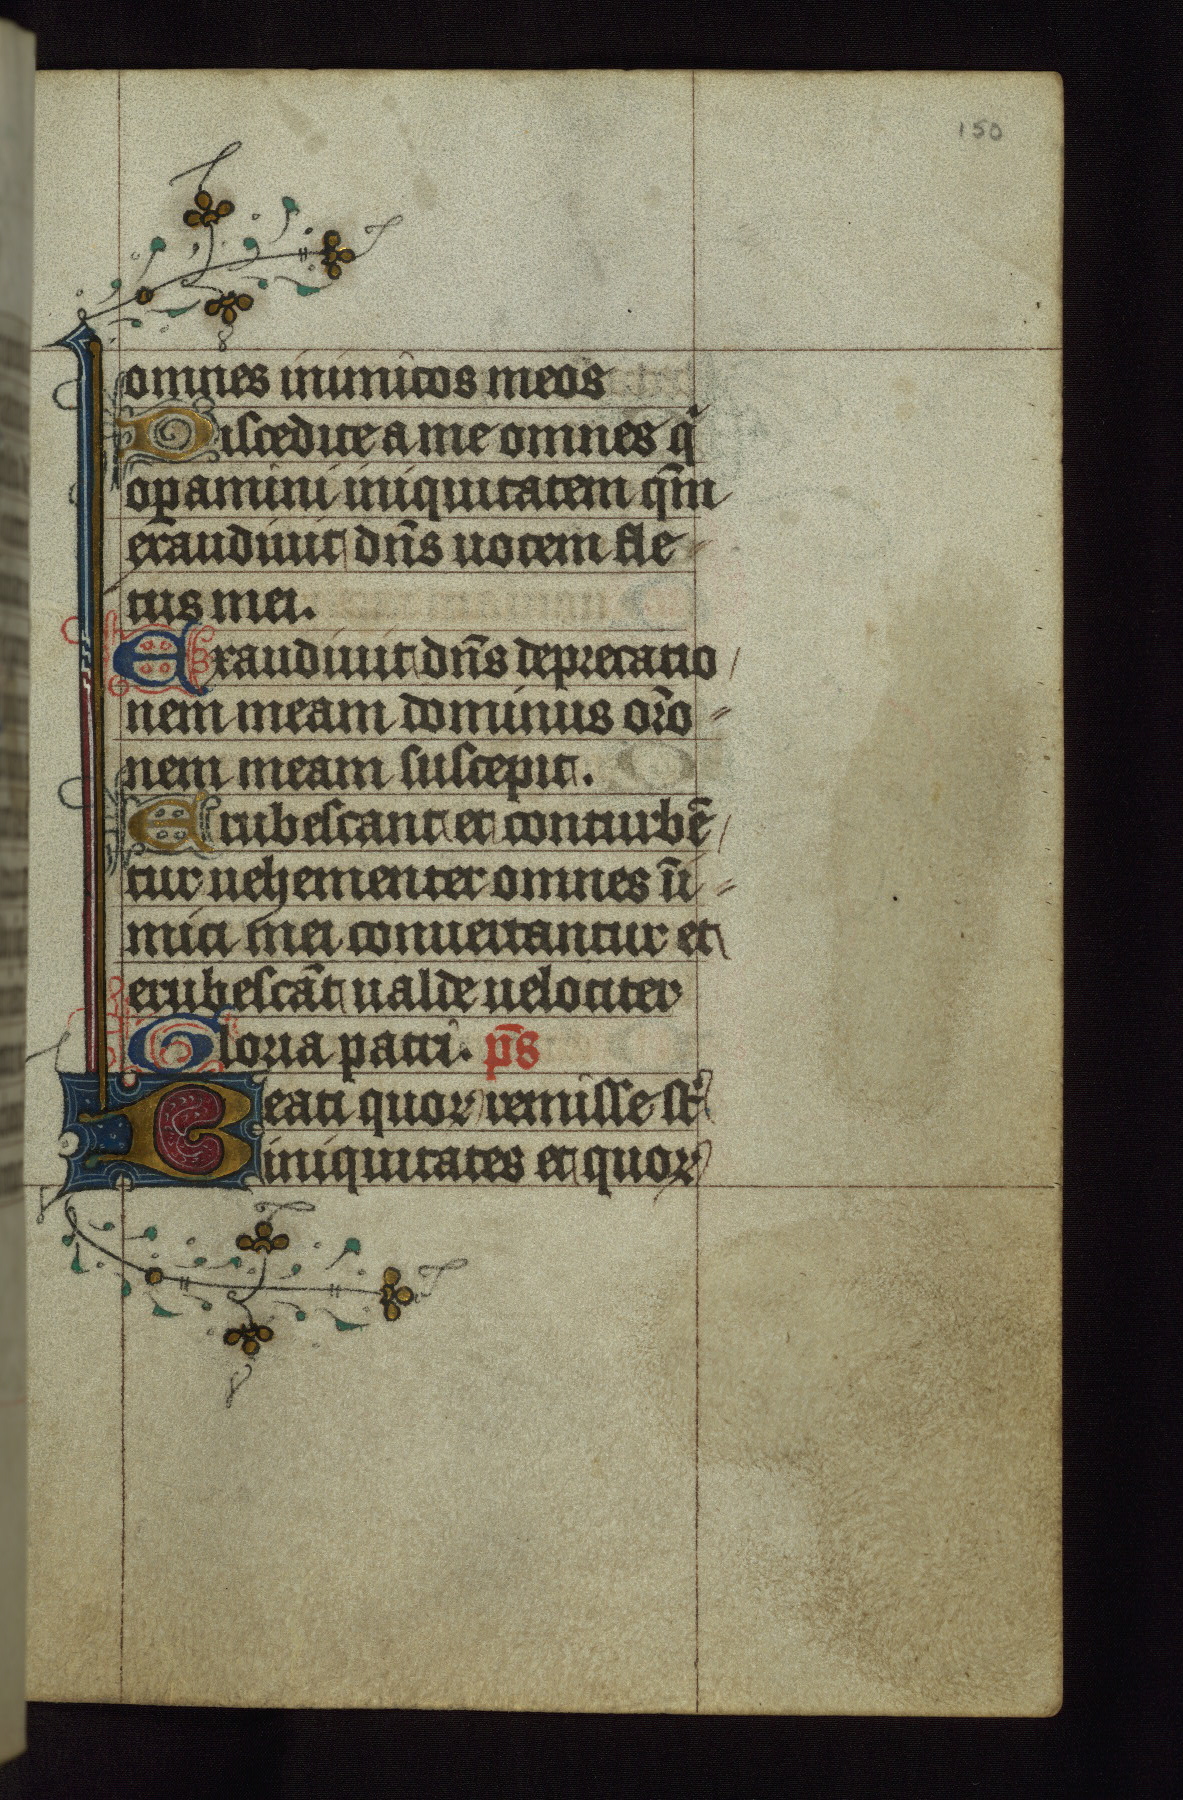 150
omnes inimicos meos
Discedite a me omnes qͥ
opamini iniquitatem qm̄
exaudiuit dn̄s uocem fle
tus mei.
Exaudiuit dn̄s deprecatio
nem meam dominus or̄o
nem meam suscepit.
Erubescant et conturbē
tur uehementer omnes īi
mici mei conuertantur et
erubescāt ualde uelociter
Gloria patri. p̄s
Beati quoꝝ remisse st̄
iniquitates et quoꝝ